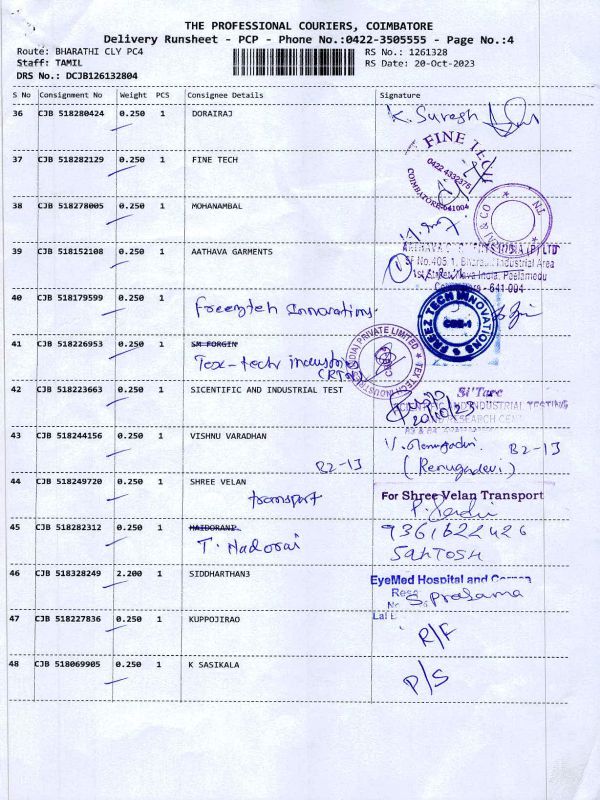 THE PROFESSIONAL COURIERS, COIMBATORE
Delivery Runsheet - PCP - Phone No.:0422-3505555 - Page No.:4
Route: BHARATHI CLY PC4 RS No.: 1261328
Staff: TAMIL RS Date: 20-Oct-2023
DRS No.: DCJB126132804
S No Consignment No Weight PCS Consignee Details Signature
36 CJB 518280424 0.250 1 DORAIRAJ K. Suresh
FINE TECH
37 CJB 518282129 0.250 1 FINE TECH 0422 4332375
COIMBATORE-641004
38 CJB 518278005 0.250 1 MOHANAMBAL
& CO
39 CJB 518152108 0.250 1 AATHAVA GARMENTS INDIA (P) LTD
SF No.405 1, Industrial Area
1st Street, Nava India, Peelamedu
Coimbatore - 641 004
40 CJB 518179599 0.250 1 Freezyteh Innovations. FREEZ TECH INNOVATIONS CBE-1
41 CJB 518226953 0.250 1 SM FORGIN
Tex-tech industries (RTN) PRIVATE LIMITED TEX TECH INDUSTRIES
42 CJB 518223663 0.250 1 SICENTIFIC AND INDUSTRIAL TEST Si'Tarc
SCIENTIFIC AND INDUSTRIAL TESTING
20/10/23 RESEARCH CENT
43 CJB 518244156 0.250 1 VISHNU VARADHAN V. Renugadevi B2-1J
B2-1J (Renugadevi)
44 CJB 518249720 0.250 1 SHREE VELAN For Shree Velan Transport
transport
45 CJB 518282312 0.250 1 HAIDORANI 9361622426
T. Nadorai SANTOSH
46 CJB 518328249 2.200 1 SIDDHARTHAN3 EyeMed Hospital and Cornea
S. Prasama
47 CJB 518227836 0.250 1 KUPPOJIRAO R/F
48 CJB 518069905 0.250 1 K SASIKALA P/S